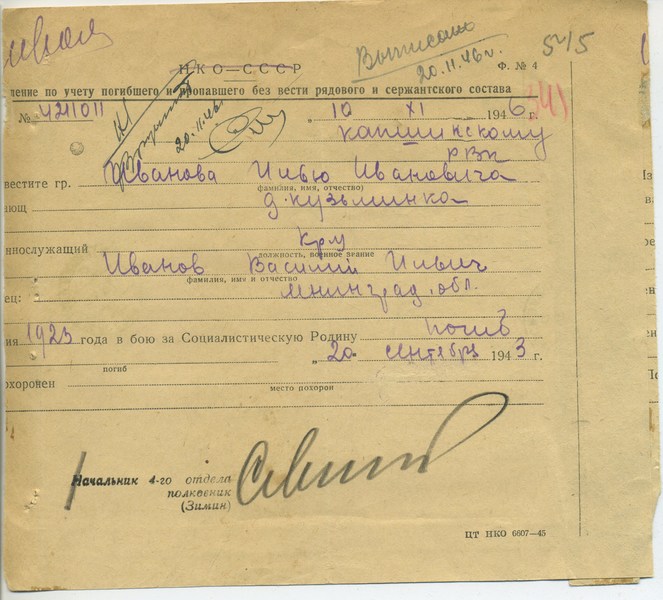 Выписано
20.11.46 г.
5415
НКО—СССР
Ф. № 4
ление по учету погибшего и пропавшего без вести рядового и сержантского состава
20.11.46
№ 421011 „10 XI 1946 г.
Капшинскому
РВК
вестите гр. Иванова Илью Ивановича
фамилия, имя, отчество)
ающ д. Кузьминка
кр-ц
ннослужащий
должность, военное звание
Иванов Василий Ильич
фамилия, имя и отчество
ец: Ленинград. обл.
ия 1923 года в бою за Социалистическую Родину погиб
„20 сентября 1943 г.
погиб
охоронен
место похорон
Начальник 4-го отдела
полковник
(Зимин)
ЦТ НКО 6607—45